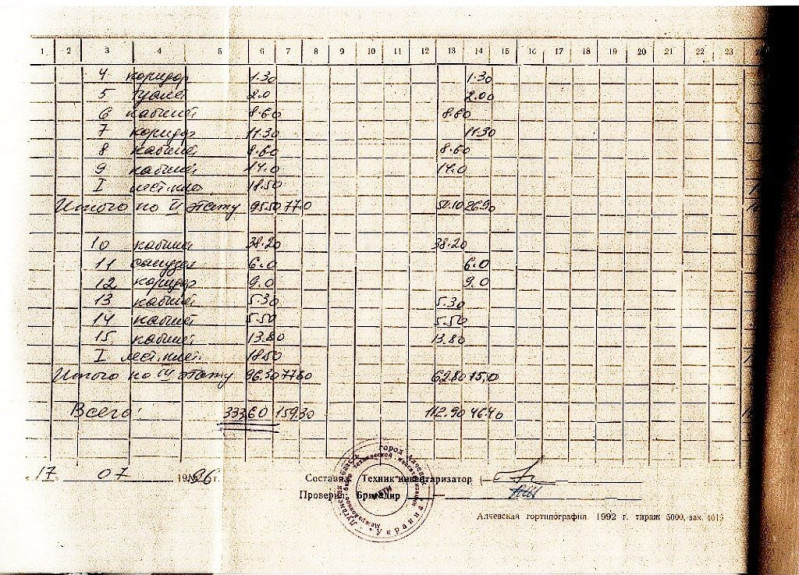 1 2 3 4 5 6 7 8 9 10 11 12 13 14 15 16 17 18 19 20 21 22 23
4 коридор 1.30 1.30
5 туалет 2.0 2.00
6 кабинет 8.60 8.60
7 коридор 11.30 11.30
8 кабинет 8.60 8.60
9 кабинет 14.0 14.0
I лест. 18.50
Итого по II этажу 95.50 77.0 50.10 26.90
10 кабинет 38.20 38.20
11 санузел 6.0 6.0
12 коридор 9.0 9.0
13 кабинет 5.30 5.30
14 кабинет 5.50 5.50
15 кабинет 13.80 13.80
I лест. клет. 18.50
Итого по III этажу 96.30 77.80 62.80 15.0
Всего: 333.60 159.30 112.90 46.40
17 07 1996г.
Составил: Техник инвентаризатор
Проверил: Бригадир
Алчевская гортипография 1992 г. тираж 5000, зак. 4019